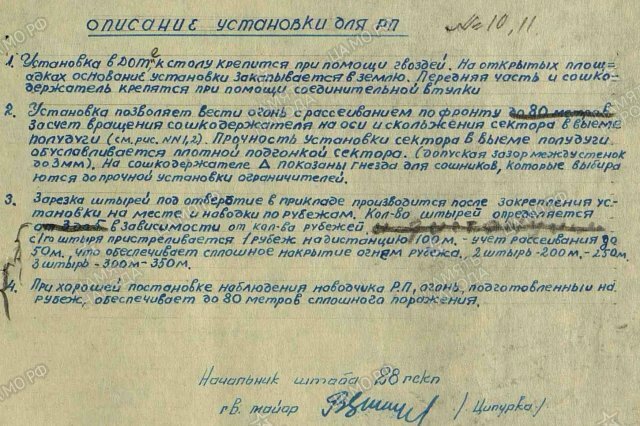 ОПИСАНИЕ УСТАНОВКИ ДЛЯ РП
№ 10, 11
1. Установка в ДОТе к столу крепится при помощи гвоздей. На открытых площ-
адках основание установки закапывается в землю. Передняя часть и сошко-
держатель крепятся при помощи соединительной втулки
2. Установка позволяет вести огонь с рассеиванием по фронту до 80 метров
За счет вращения сошкодержателя на оси и скольжения сектора в выеме
полудуги (см. рис. №№ 1,2). Прочность установки сектора в выеме полудуги
обуславливается плотной подгонкой сектора. (допуская зазор между стенок
до 3 мм). На сошкодержателе Δ показаны гнезда для сошников, которые выбира-
ются до прочной установки ограничителей.
3. Зарезка штырей под отверстие в прикладе производится после закрепления ус-
тановки на месте и наводки по рубежам. Кол-во штырей определяется
в зависимости от кол-ва рубежей,
с 1го штыря пристреливается 1 рубеж на дистанцию 100 м. - учет рассеивания до
50 м. что обеспечивает сплошное накрытие огнем рубежа, 2 штырь - 200 м. - 250 м.
3 штырь - 300 м - 350 м.
4. При хорошей постановке наблюдения наводчика Р.П., огонь, подготовленный на
рубеж, обеспечивает до 80 метров сплошного поражения.
Начальник штаба 28 гскп
гв. майор /Ципурка/
ЦАМО РФ
ПАМЯТЬ